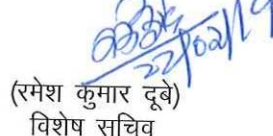 22/02/19
(रमेश कुमार दूबे)
विशेष सचिव